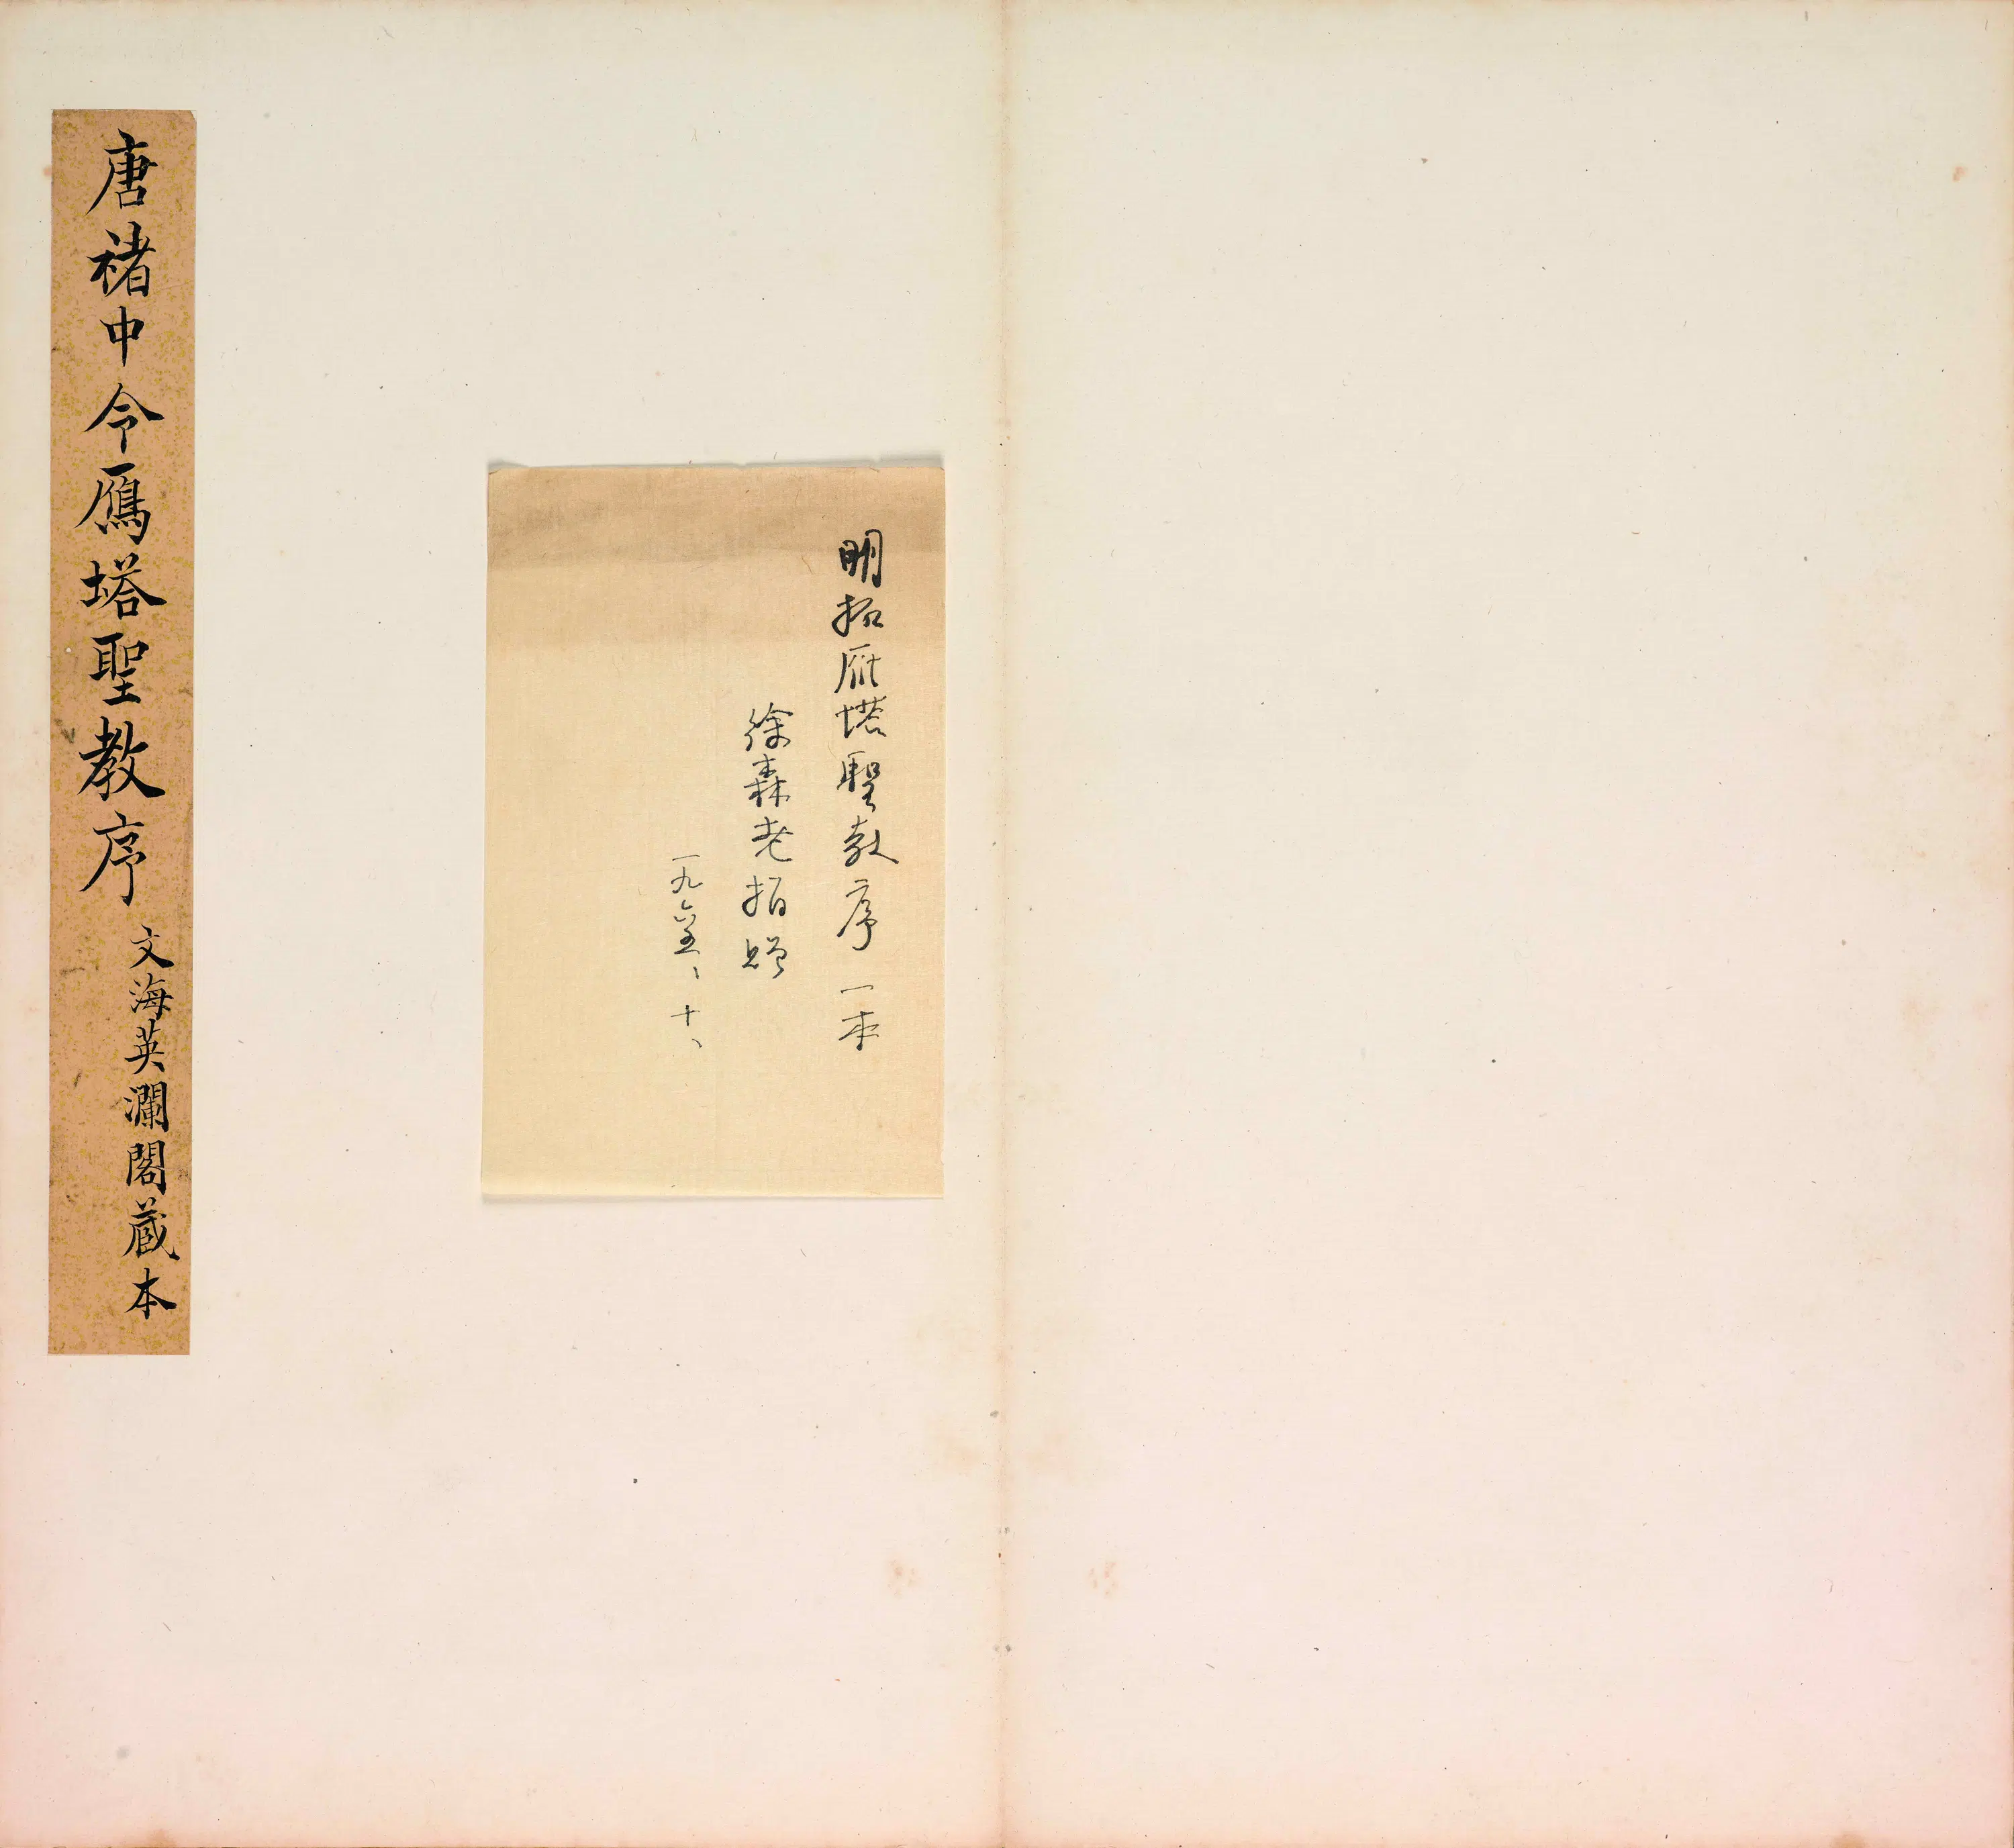 明拓雁塔聖教序一本
徐森老捐贈
一九六、十、
唐褚中令鴈塔聖教序
文海英瀾閣藏本